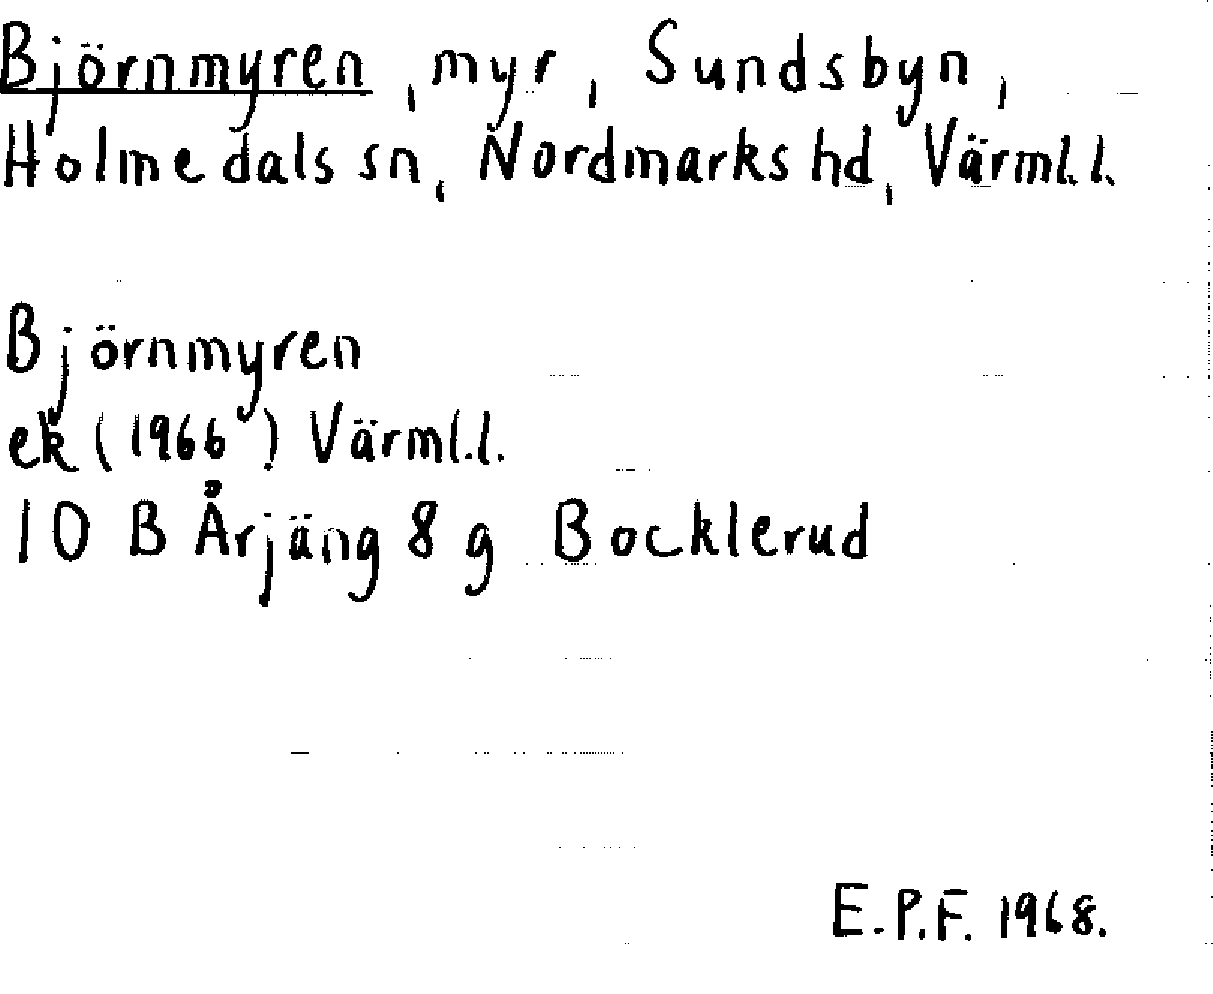 Björnmyren, myr, Sundsbyn,
Holmedals sn, Nordmarks hd, Värml.l.
Björnmyren
ek (1966) Värml.l.
10 B Årjäng 8 g Bocklerud
E.P.F. 1968.